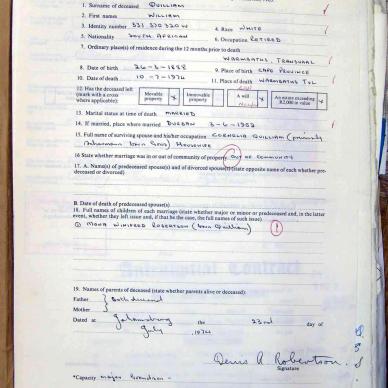 1. Surname of deceased QUILLIAM
2. First names WILLIAM
3. Identity number 331 330320W 4. Race WHITE
5. Nationality SOUTH AFRICAN 6. Occupation RETIRED
7. Ordinary place(s) of residence during the 12 months prior to death
WARMBATHS, TRANSVAAL
8. Date of birth 26-6-1888 9. Place of birth CAPE PROVINCE
10. Date of death 10-7-1974 11. Place of death WARMBATHS TVL
12. Has the deceased left (mark with a cross where applicable): Movable property X Immovable property A will X An estate exceeding R2,000 in value X
13. Marital status at time of death MARRIED
14. If married, place where married DURBAN 3-6-1952
15. Full name of surviving spouse and his/her occupation CORNELIA QUILLIAM (previously
HOUSEWIFE
16. State whether marriage was in or out of community of property OUT OF COMMUNITY
17. A. Name(s) of predeceased spouse(s) and of divorced spouse(s) (state opposite name of each whether pre-
deceased or divorced)
B. Date of death of predeceased spouse(s)
18. Full names of children of each marriage (state whether major or minor or predeceased and, in the latter
event, whether they left issue and, if that be the case, the full names of such issue)
① MONA WINIFRED ROBERTSON (born Quilliam)
19. Names of parents of deceased (state whether parents alive or deceased):
Father } Both deceased
Mother
Dated at Johannesburg the 23rd day of
July 1974
Denis A Robertson.
Signature
*Capacity major Grandson -